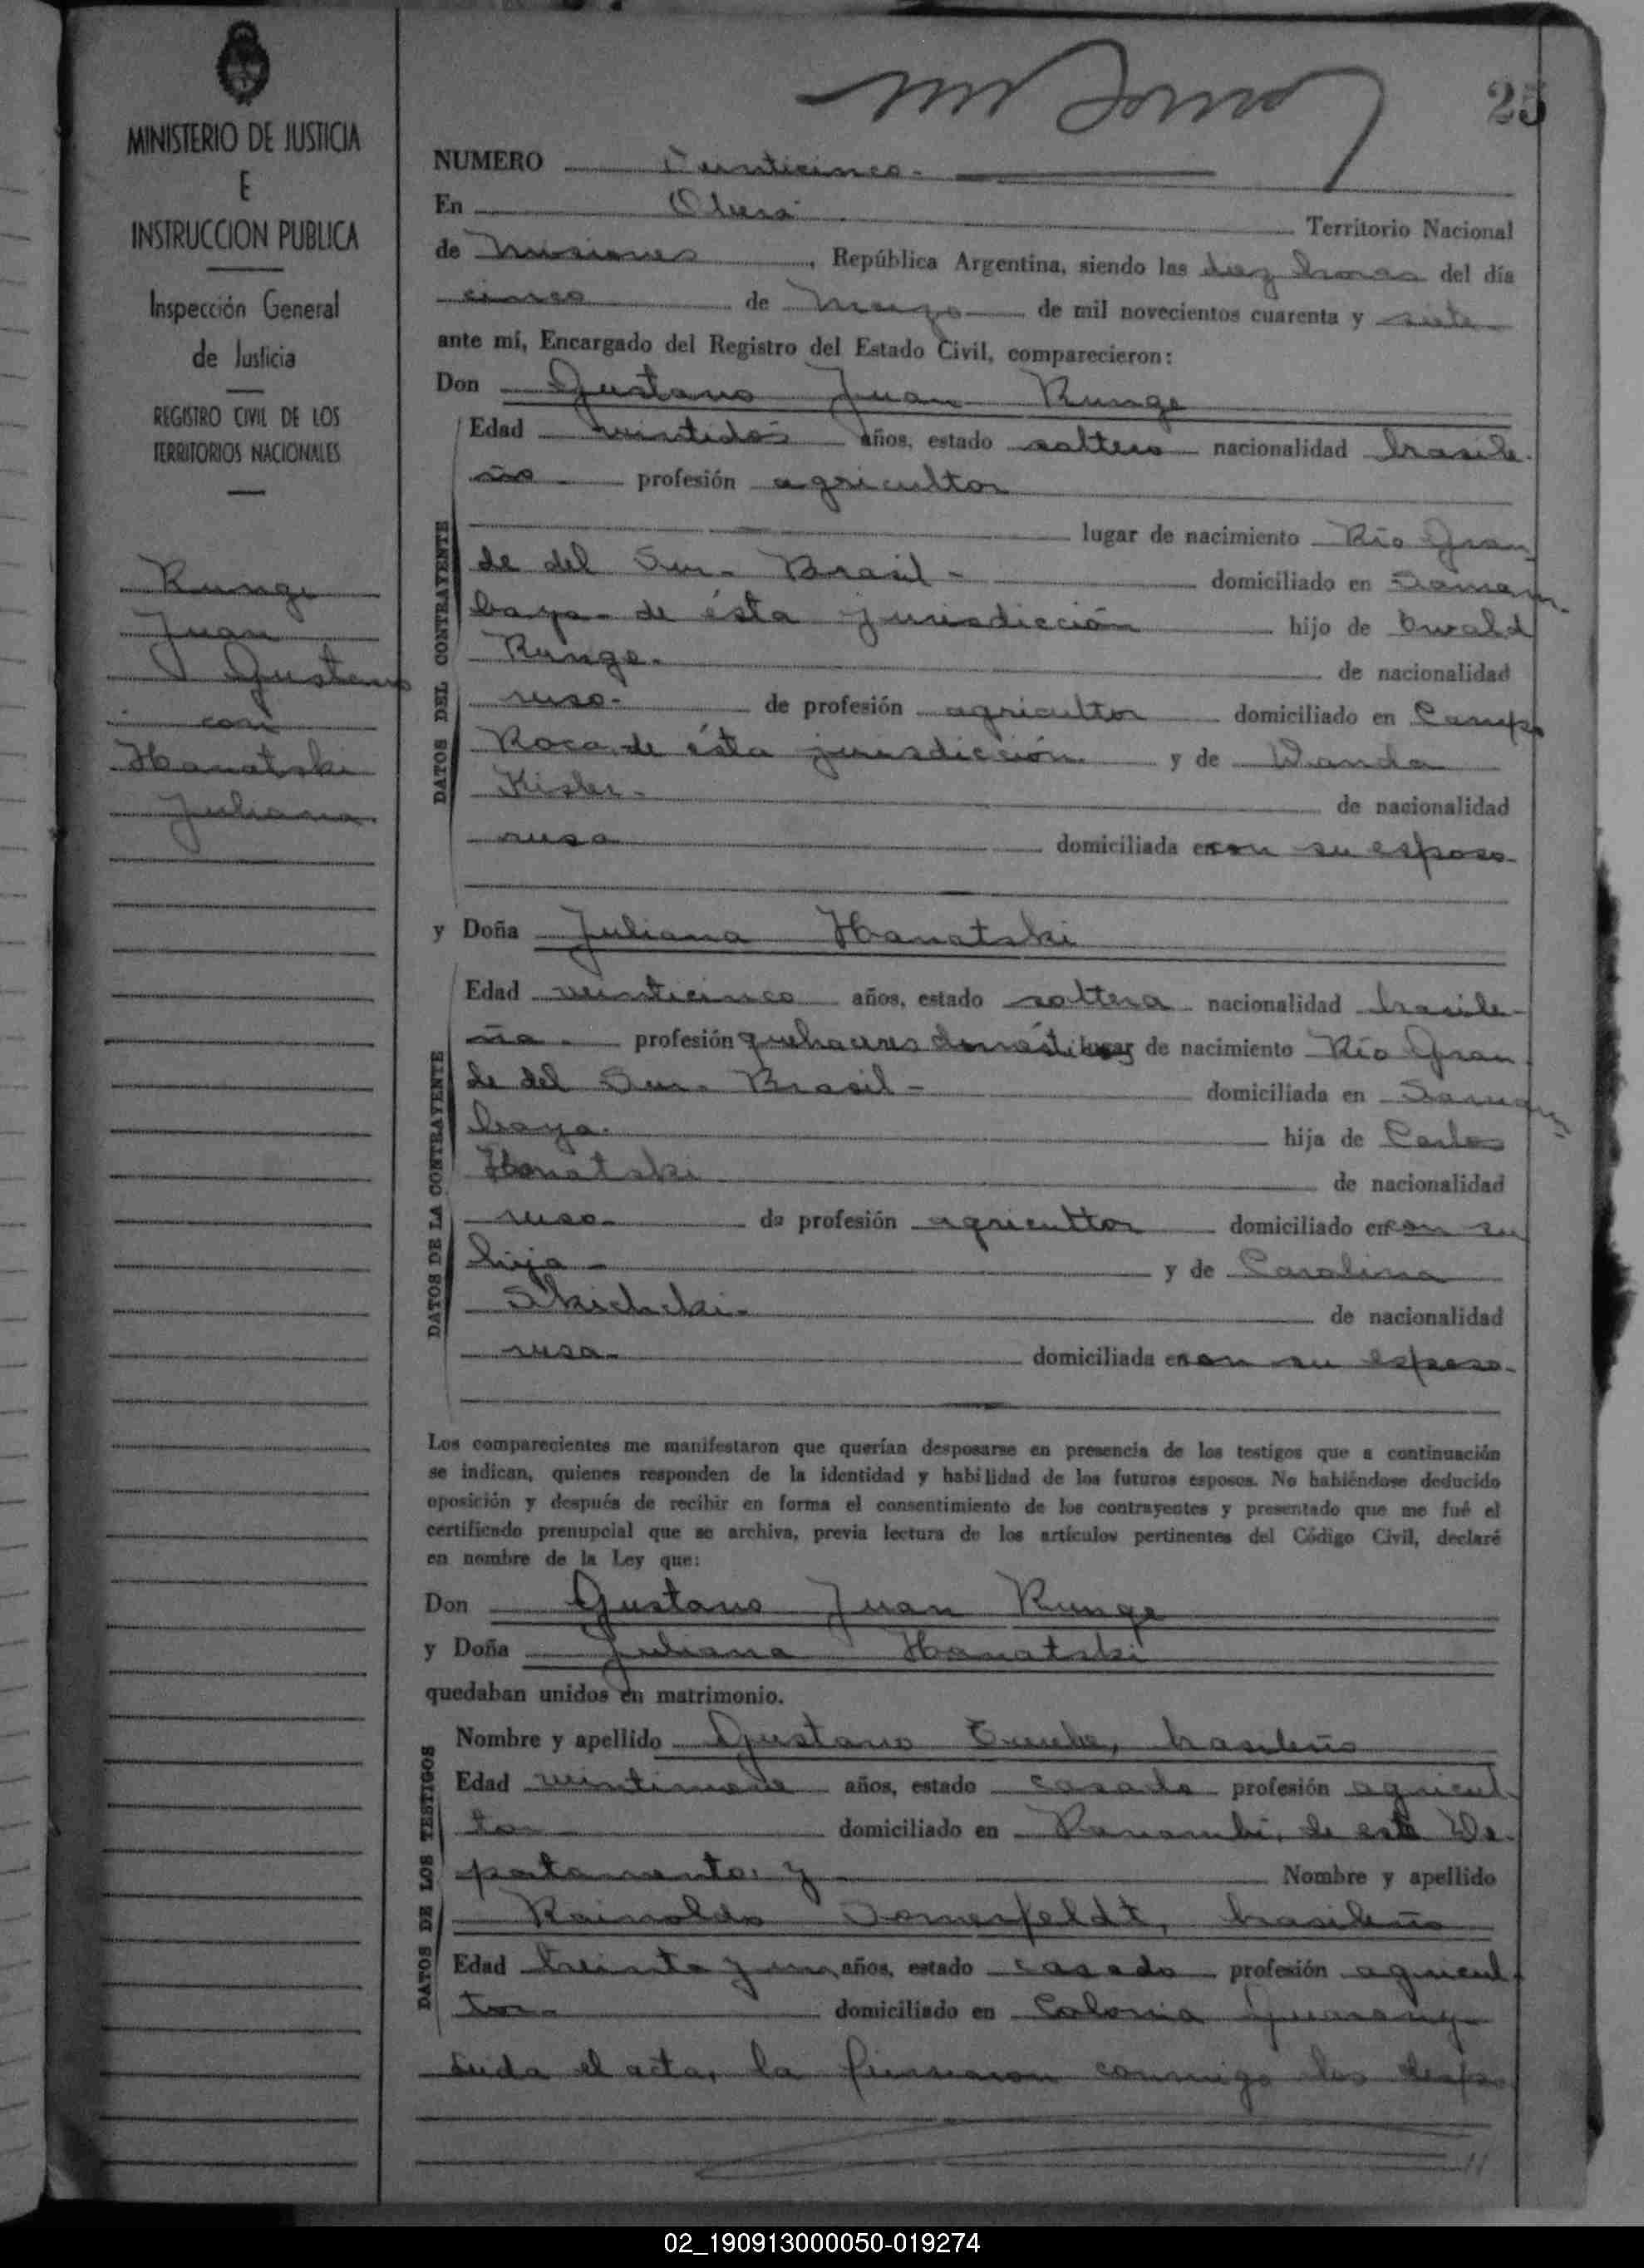 25
MINISTERIO DE JUSTICIA
E
INSTRUCCION PUBLICA
Inspección General
de Justicia
REGISTRO CIVIL DE LOS
TERRITORIOS NACIONALES
Runge
Juan
Gustavo
con
Hanatski
Juliana
NUMERO Veinticinco.
En Oberá Territorio Nacional
de Misiones, República Argentina, siendo las diez horas del día
cinco de Marzo de mil novecientos cuarenta y siete
ante mí, Encargado del Registro del Estado Civil, comparecieron:
Don Gustavo Juan Runge
DATOS DEL CONTRAYENTE
Edad veintidos años, estado soltero nacionalidad brasile-
ño profesión agricultor
lugar de nacimiento Río Gran
de del Sur. Brasil - domiciliado en Samam-
baya- de ésta jurisdicción hijo de Owald
Runge. de nacionalidad
ruso- de profesión agricultor domiciliado en Campo
Roca, de ésta jurisdicción y de Wanda
Kisler. de nacionalidad
rusa domiciliada en con su esposo.
y Doña Juliana Hanatski
DATOS DE LA CONTRAYENTE
Edad veinticinco años, estado soltera nacionalidad brasile-
ña. profesión quehaceres domésticos lugar de nacimiento Río Gran
de del Sur. Brasil - domiciliada en Samam-
baya. hija de Carlos
Hanatski de nacionalidad
ruso. de profesión agricultor domiciliado en con su
hija - y de Carolina
de nacionalidad
rusa. domiciliada en con su esposo.
Los comparecientes me manifestaron que querían desposarse en presencia de los testigos que a continuación
se indican, quienes responden de la identidad y habilidad de los futuros esposos. No habiéndose deducido
oposición y después de recibir en forma el consentimiento de los contrayentes y presentado que me fué el
certificado prenupcial que se archiva, previa lectura de los artículos pertinentes del Código Civil, declaré
en nombre de la Ley que:
Don Gustavo Juan Runge
y Doña Juliana Hanatski
quedaban unidos en matrimonio.
DATOS DE LOS TESTIGOS
Nombre y apellido Gustavo brasileño
Edad veintinueve años, estado casado profesión agricul-
tor domiciliado en Panambí, de este De-
partamento, y Nombre y apellido
Rainoldo Somerfeldt, brasileño
Edad treinta y un años, estado casado profesión agricul-
tor- domiciliado en Colonia Guarany-
Leida el acta, la firmaron conmigo los despo
02_190913000050-019274